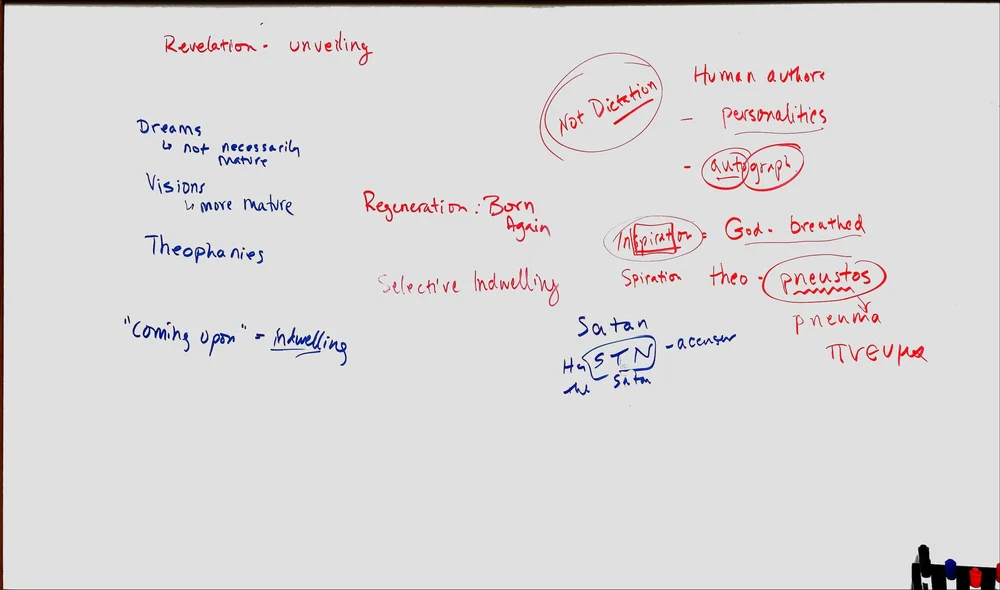 Revelation - unveiling
Dreams
↳ not necessarily
mature
Visions
↳ more mature
Theophanies
"Coming upon" = indwelling
Regeneration: Born
Again
Selective Indwelling
Not Dictation
Human authors
- personalities
- autograph
Inspiration = God-breathed
Spiration
theo-pneustos
pneuma
πνευμα
Satan
Ha STN - accuser
the Satan